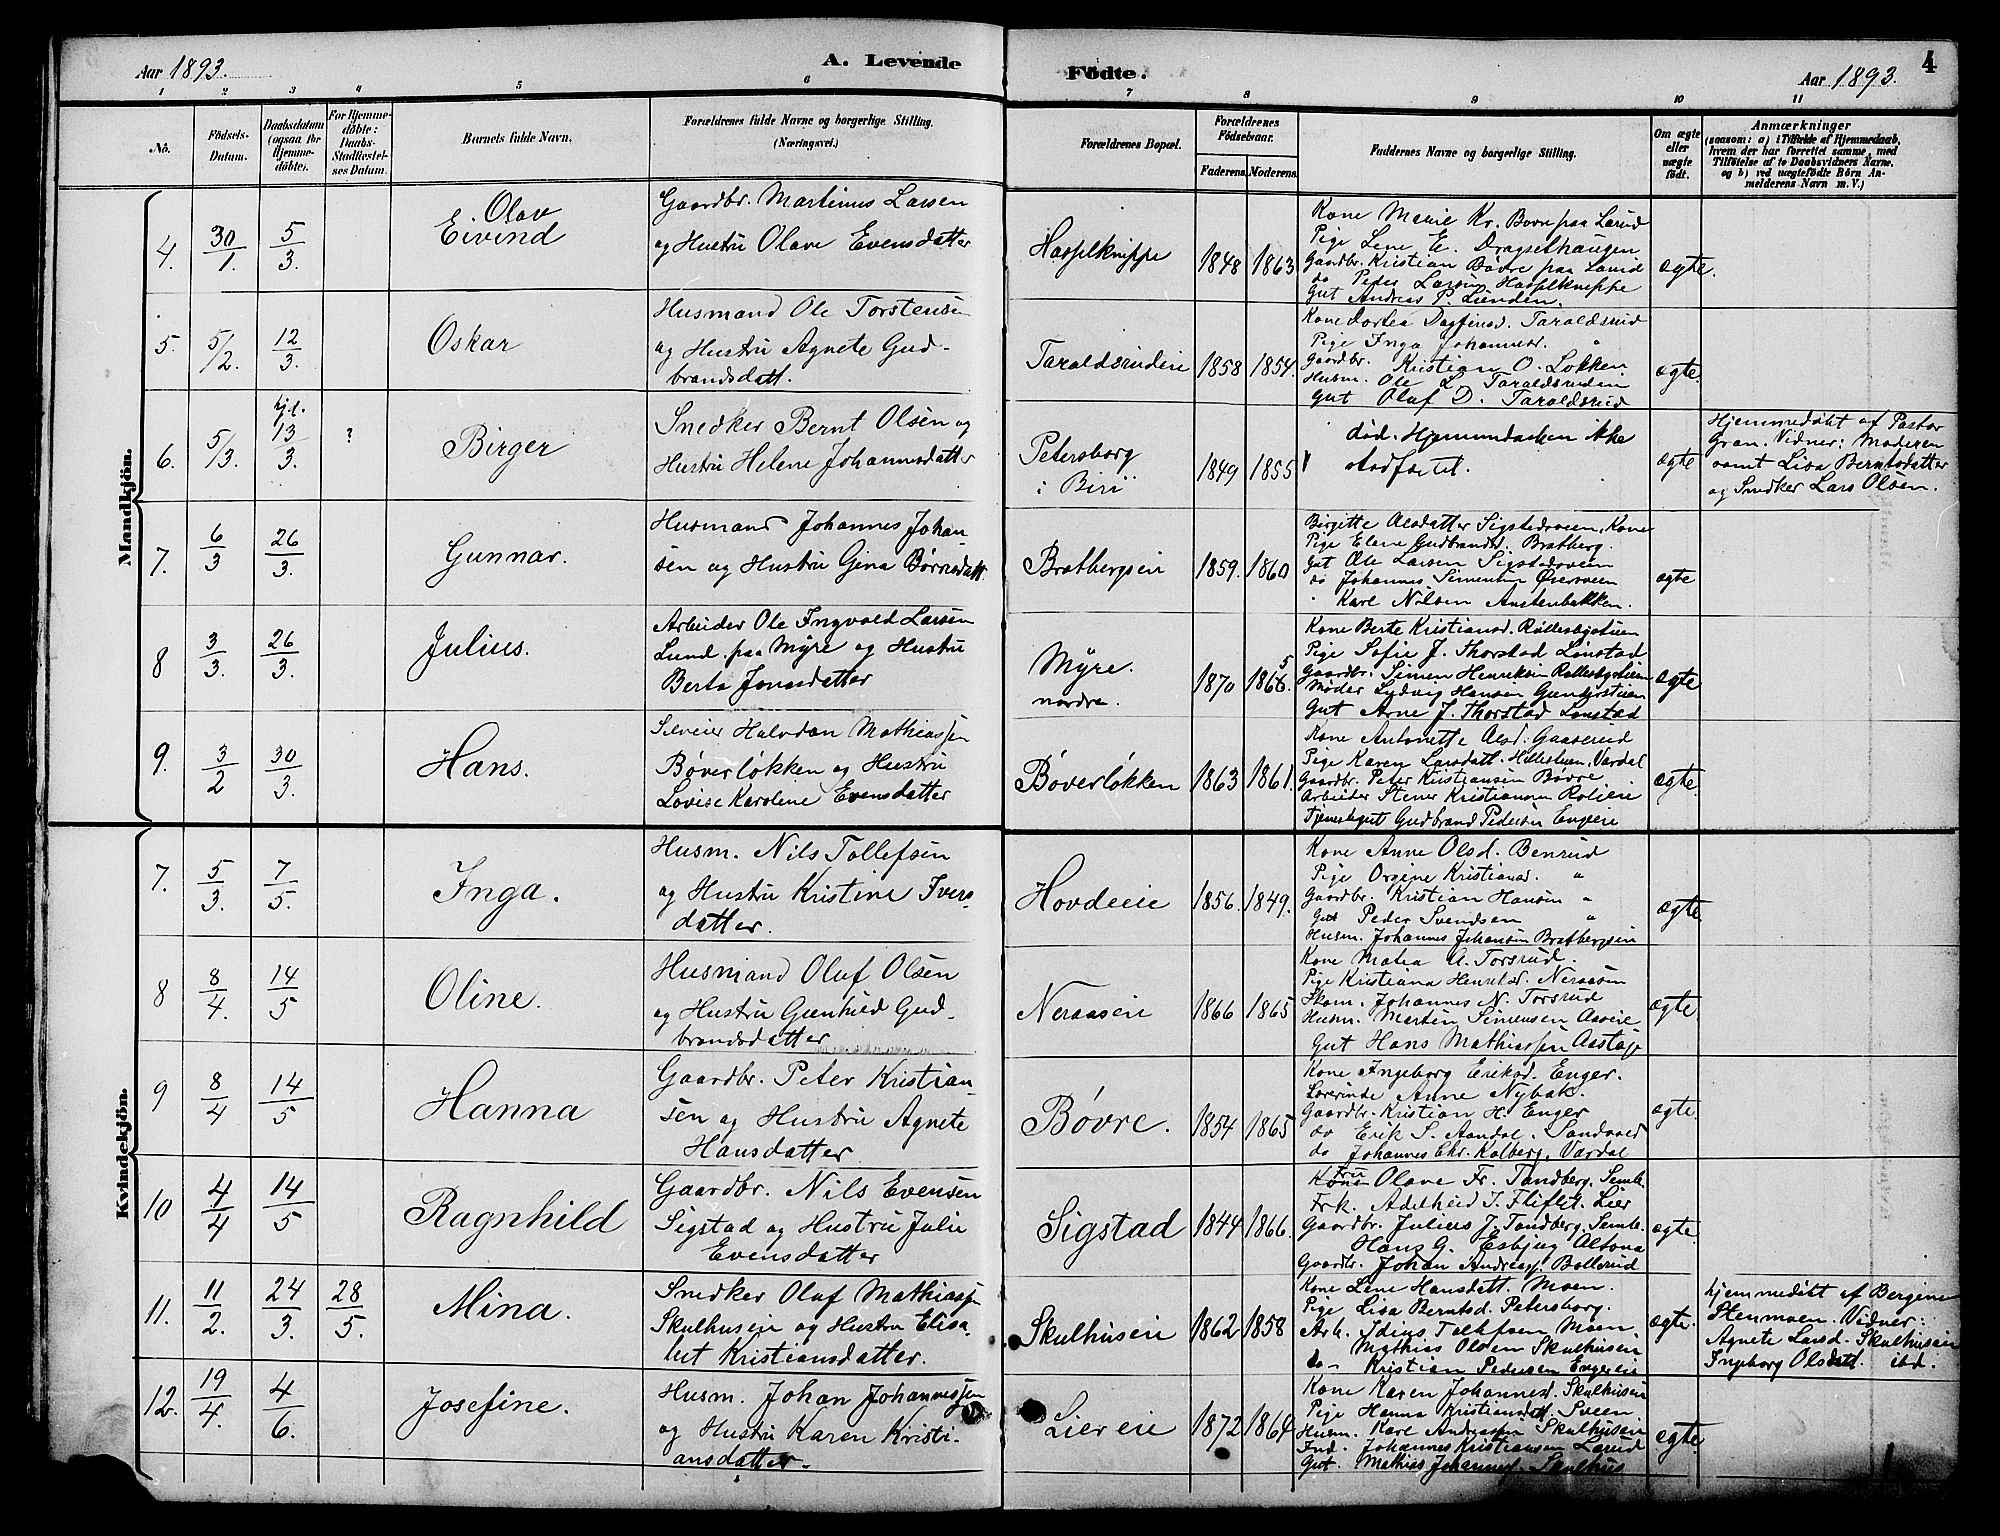 Aar 1893.
A. Levende
Fødte.
Aar 1893.
4
1 2 3 4 5 6 7 8 9 10 11
No.
Fødsels-
Datum.
Daabsdatum
(ogsaa for
Hjemme-
døbte).
For Hjemme-
døbte:
Daabs-
Stadfæstel-
ses Datum.
Barnets fulde Navn.
Forældrenes fulde Navne og borgerlige Stilling.
(Næringsvei.)
Forældrenes Bopæl.
Forældrenes
Fødselsaar.
Faderens. Moderens.
Faddernes Navne og borgerlige Stilling.
Om ægte
eller
uægte
født.
Anmærkninger
(saasom: a) i Tilfælde af Hjemmedaab,
hvem der har forrettet samme, med
Tilføielse af to Daabsvidners Navne,
og b) ved uægtefødte Børn An-
melderens Navn m. V.)
Mandkjön.
4. 30/1. 5/3.
Olav
Eivind
Gaardbr. Martinus Larsen
og Hustru Olave Evensdatter
Hasselknippe
1848 1863
Kone Marie Kr. Bøvre paa Larud
Pige Lene E. Dragsethaugen
Gaardbr. Kristian Bøvre paa Larud
do Peder Larsen Hasselknippe
Gut Andreas P. Linden.
ægte.
5. 5/2. 12/3.
Oskar
Husmand Ole Torstensen
og Hustru Agnete Gud-
brandsdatt.
Taraldsrudeie
1858 1854.
Kone Dortea Dagfinsd. Taraldsrud
Pige Inga Johannesd. "
Gaardbr. Kristian O. Løkken
Husm. Ole L. Taraldsrudeie
Gut Oluf D. Taraldsrud
ægte.
6. 5/3. hjd. 13/3. ?
Birger
Snedker Bernt Olsen og
Hustru Helene Johannesdatter
Petersborg
i Biri
1849 1855
død. Hjemmedaaben ikke
stadfæstet.
ægte
Hjemmedøbt af Pastor
Gran. Vidner: Moderen
samt Lisa Berntsdatter
og Snedker Lars Olsen.
7. 6/3 26/3.
Gunnar.
Husmand Johannes Johan-
sen og Hustru Gina Børresdatt.
Bratbergseie
1859. 1860
Birgitte Olsdatter Sigstadsveen, Kone
Pige Elene Gudbrandsd. Bratberg.
Gut Ole Larsen Sigstadsveen
do Johannes Simensen
Karl Nilsen Austenbakken.
ægte
8 3/3. 26/3.
Julius.
Arbeider Ole Ingvald Larsen
Lund paa Myre og Hustru
Berta Jonasdatter
Myre.
nordre.
1870 1865.
Kone Berte Kristiansd.
Pige Sofie J. Thorstad Lønstad
Gaardbr. Simen Henriksen
Møller Lydvig Hansen
Gut Arne J. Thorstad Lønstad
ægte
9. 3/2 30/3.
Hans.
Halvdan Mathiassen
Bøverløkken og Hustru
Lovise Karolene Evensdatter
Bøverløkken
1863 1861.
Kone Antonette Olsd. Gaaserud
Pige Karen Larsdatt. Vardal
Gaardbr. Peter Kristiansen Bøvre
Arbeider Stener Kristiansen
Tjenestegut Gudbrand Pedersen Engeie
ægte.
Kvindekjön.
7. 5/3. 7/5.
Inga.
Husm. Nils Tollefsen
og Hustru Kristine Ivers-
datter.
Hovdeeie
1856. 1849.
Kone Anne Olsd. Benrud
Pige Orgine Kristiansd. "
Gaardbr. Kristian Hansen "
Gut Peder Svendsen "
Husm. Johannes Johansen Bratbergseie
ægte.
8 8/4. 14/5
Oline.
Husmand Oluf Olsen
og Hustru Gunhild Gud-
brandsdatter
Neraaseie
1866 1865
Kone Matea A. Torsrud.
Pige Kristiana Henriksd. Neraasen
Skom. Johannes N. Torsrud
Husm. Martin Simensen Aaseie
Gut Hans Mathiassen
ægte.
9 8/4 14/5
Hanna
Gaardbr. Peter Kristian-
sen og Hustru Agnete
Hansdatter
Bøvre.
1854 1865
Kone Ingeborg Eriksd. Enger.
Lærerinde Anne Nybak.
Gaardbr. Kristian H. Enger
do Erik S. Aandal.
do Johannes Chr. Kalberg. Vardal
ægte.
10 4/4 14/5
Ragnhild
Gaardbr. Nils Evensen
Sigstad og Hustru Julie
Evensdatter
Sigstad
1844 1866.
Fru Olave Fr. Tandberg.
Frk. Adelheid T. Fliflet. Lier
Gaardbr. Julius J. Tandberg.
Hans G. Esbjug Altona
Gaardbr. Johan Andreass. Bollerud
ægte.
11. 11/2. 24/3. 28/5.
Mina.
Snedker Oluf Mathiassen
Skulhuseie og Hustru Elisa-
bet Kristiansdatter.
Skulhuseie
1862 1858
Kone Lene Hansdatt. Moen.
Pige Lisa Berntsd. Petersborg.
Arb. Idius Tollefsen Moen.
Mathias Olsen Skulhuseie
do - Kristian Pedersen Engereie
ægte.
hjemmedøbt af Bergine
Stenmoen. Vidner:
Agnete Larsd. Skulhuseie
Ingeborg Olsdatt. ibd.
12. 19/4. 4/6.
Josefine.
Husm. Johan Johannessen
og Hustru Karen Kristi-
ansdatter.
Liereie
1872 1864
Kone Karen Johannesd. Skulhuseie
Pige Hanna Kristiansdatt. Sveen.
Husm. Karl Andreassen Skulhuseie
Ind. Johannes Kristiansen Larud
Gut. Mathias Johannes. Skulhus
ægte